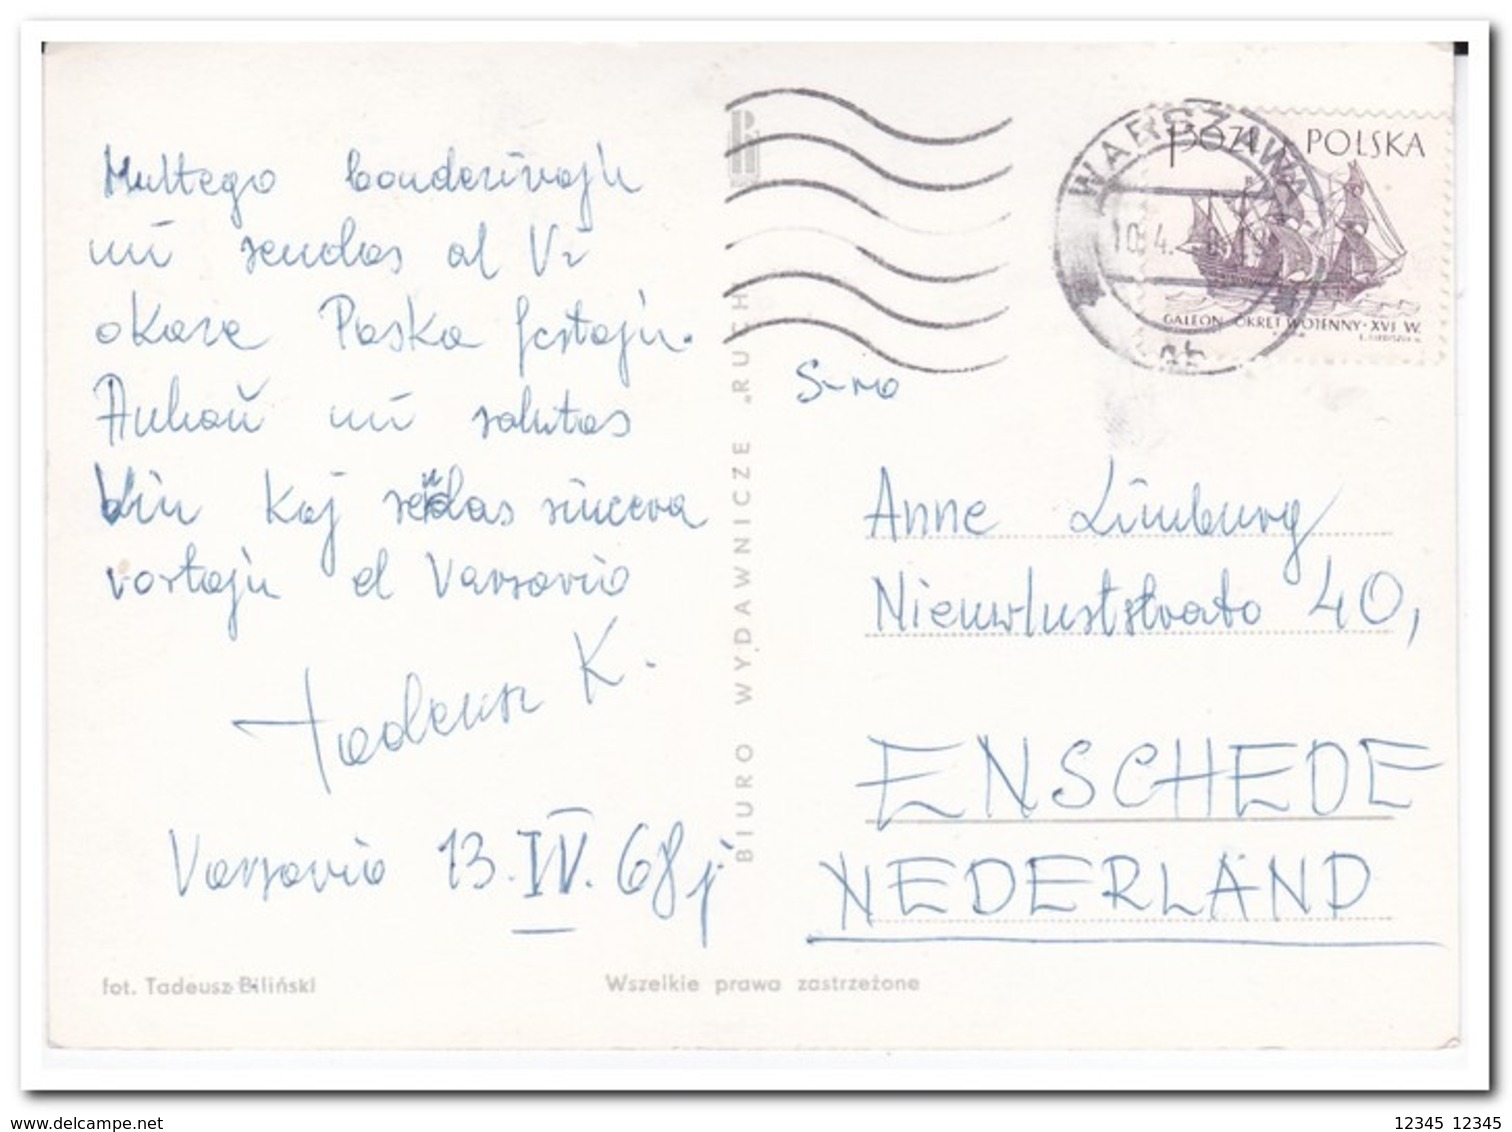 Multego bondezirojn
mi sendas al Vi
okaze Paska festojn.
Ankaŭ mi salutas
Vin kaj sendas sincera
vortojn el Varsovio
Tadeusz K.
Varsovio 13.IV.68j
fot. Tadeusz Biliński
Wszelkie prawa zastrzeżone
BIURO WYDAWNICZE „RUCH"
WARSZAWA
10.4.
1,30 ZŁ POLSKA
GALEON-OKRĘT WOJENNY-XVI W.
S-ro
Anne Limburg
Nieuwluststrato 40,
ENSCHEDE
NEDERLAND
12345 12345